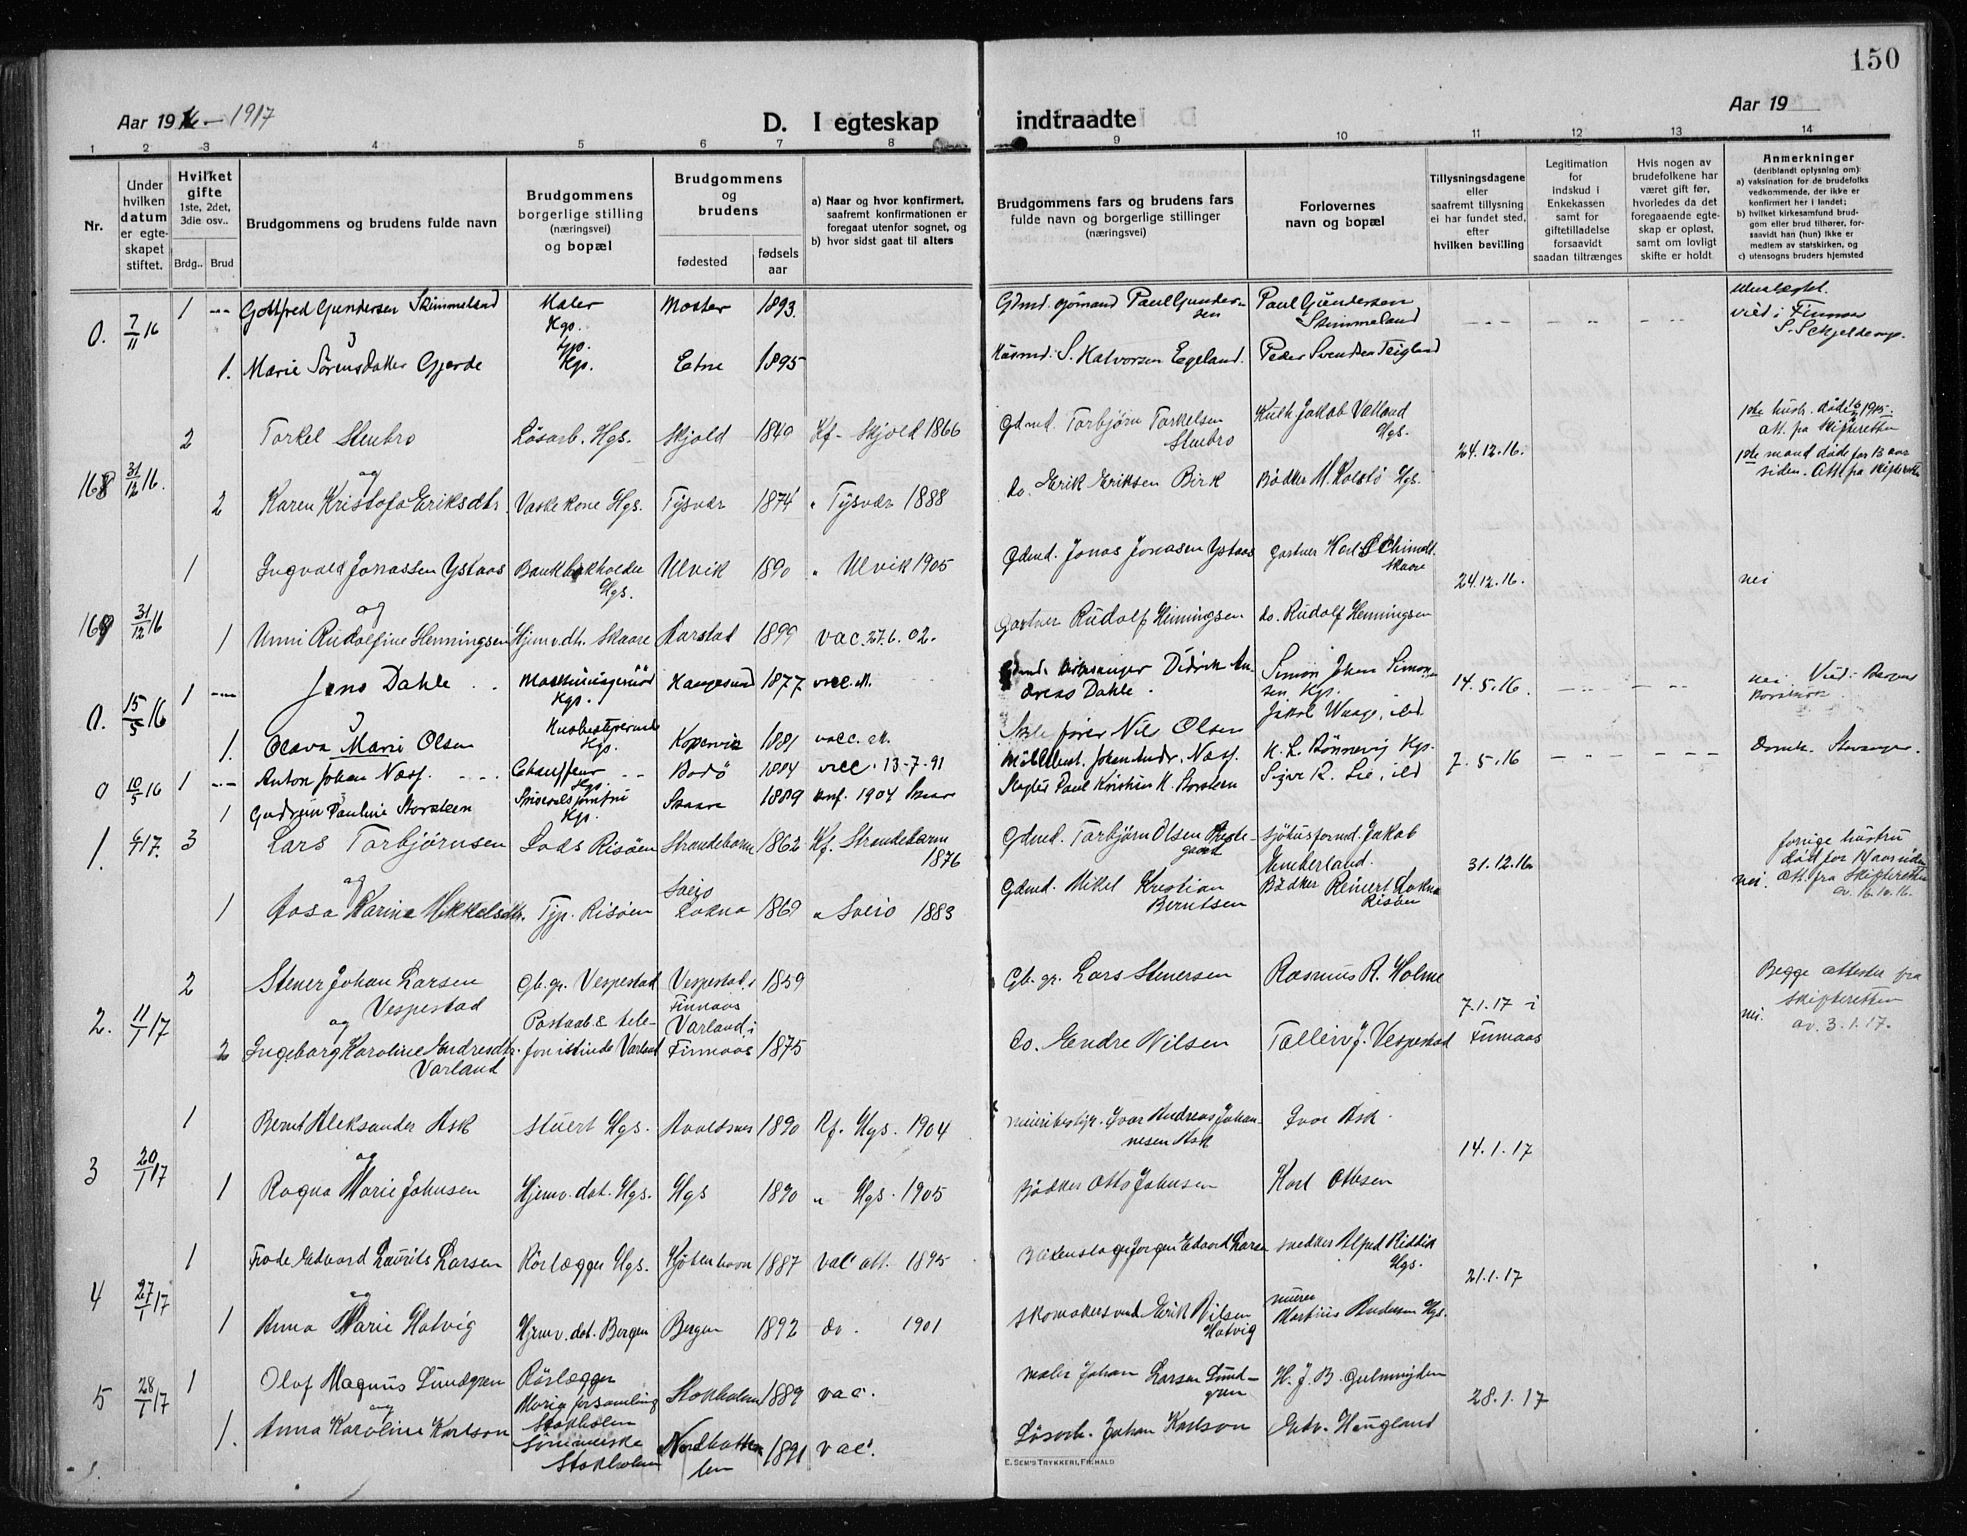 150
Aar 1916 - 1917
D. I egteskap indtraadte
Aar 19
1 2 3 4 5 6 7 8 9 10 11 12 13 14
Nr.
Under hvilken datum er egteskapet stiftet.
Hvilket gifte 1ste, 2det, 3die osv..
Brdg.. Brud
Brudgommens og brudens fulde navn
Brudgommens borgerlige stilling (næringsvei) og bopæl
Brudgommens og brudens
fødested
fødsels aar
a) Naar og hvor konfirmert, saafremt konfirmationen er foregaat utenfor sognet, og
b) hvor sidst gaat til alters
Brudgommens fars og brudens fars fulde navn og borgerlige stillinger (næringsvei)
Forlovernes navn og bopæl
Tillysningsdagene eller saafremt tillysning ei har fundet sted, efter hvilken bevilling
Legitimation for indskud i Enkekassen samt for giftetilladelse forsaavidt saadan tiltrænges
Hvis nogen av brudefolkene har været gift før, hvorledes da det foregaaende egteskap er opløst, samt om lovligt skifte er holdt
Anmerkninger
(deriblandt oplysning om):
a) vaksination for de brudefolks vedkommende, der ikke er konfirmert her i landet;
b) hvilket kirkesamfund brudgom eller brud tilhører, forsaavidt han (hun) ikke er medlem av statskirken, og
c) utensogns bruders hjemsted
0. 7/11 16 1 Gottfred Gundersen Skimmeland Maler Hgs. Moster 1893. Gdmd. Paul Gundersen Paul Gundersen Skimmeland
vied i Finnaas
1. Marie Sørensdatter Gjerde Hgs. Etne 1895 Husmd. S. Halvorsen Egeland. Peder Svendsen Teigland
2 Torkel Stenbro Løsarb. Hgs. Skjold 1849 Kf. Skjold 1866 Gdmd. Torbjørn Torkelsen Stenbro Jakob Valland Hgs.
1ste hustr. døde 1905. att. fra skifteretten
168 31/12 16. og 24.12.16.
2 Karen Kristofa Eriksdtr. Vaskekone Hgs. Tysvær 1874 " Tysvær 1888 do. Erik Eriksen Birk Bødker M. Kolstø Hgs.
1ste mand døde for 13 aar siden. Att fra skifteretten
1 Ingvald Jonassen Ystaas Bankbokholder Hgs. Ulvik 1890 " Ulvik 1905 Gdmd. Jonas Jonasen Ystaas gartner Skaare
24.12.16. nei
169 31/12 16 og
1 Unni Rudolfine Henningsen Hjemv. dtr. Skaare Aarstad 1899 vac. 27.6.02. Gartner Rudolf Henningsen do. Rudolf Henningsen
0. 15/5 16 1 Jens Dahle Haugesund 1877 vacc. Didrik Andreas Dahle. Simon Johan Simonsen Hgs. 14.5.16. nei Vied i Bergen
1. Olava Marie Olsen Husbestyrerinde Hgs. Kopervik 1881 vacc. Nils Olsen Jakob Waage, ibd
0 10/5 16 1 Anton Johan Næsf. Chauffeur Hgs. Bodø 1884 vacc. 13-7-91 Johan Andr. Næsf. H. L. Bønnevig Hgs. 7.5.16 Domk. Stavanger.
1 Gudrun Pauline Storsteen Hgs. Skaare 1889 konf. 1904 Skaare Paul Kristian K. Storsteen Sigv. R. Lie, ibd
1. 6/1 17. 3 Lars Torbjørnsen Lods Risøen Strandebarm 1862 Kf. Strandebarm 1876 Gdmd. Torbjørn Olsen sjøtusformd. Jakob Emberland.
31.12.16
forrige hustru død for 14 aar siden att. fra Skifteretten av. 16.10.16.
nei.
og
1 Karine Mikkelsdtr. Tjp. Risøen Sveio Lokna 1869 " Sveio 1883 Gdmd. Mikel Kristian Berntsen Bødker Reinert Lokna Risøen
2 Stener Johan Larsen Vespestad Gb. gr. Vespestad Vespestad i Finnaas 1859 Gb. gr. Lars Stenersen Rasmus R. Holme
Begge attester fra skifteretten av. 3.1.17.
nei.
2. 11/1 17 og 7.1.17 i Finnaas
2 Ingeborg Karoline Endresdtr. Varland Postaab. & telefonistinde Varland Varland i Finnaas 1875 do. Endre Nilsen Tolleiv J. Vespestad
1 Bernt Aleksander Ask Stuert Hgs. Avaldsnes 1890 Kf. Hgs. 1904 meieribestyr. Ivar Andreas Johannesen Ask Ivar Ask
3 20/1 17 og 14.1.17
1 Ragna Marie Johnsen Hjemv. dat. Hgs. Hgs 1890 " Hgs. 1905 Bødker Otto Johnsen Karl Ottesen
1 Frode Edvard Laurits Larsen Rørlægger Hgs. Kjøbenhavn 1887 vac att. 1895 Jørgen Edvard Larsen snedker Alfred Hgs.
4 27/1 17 og 21.1.17
1 Anna Marie Hatvig Hjemv. dat. Bergen Bergen 1892 do. 1901 Skomakersvend Erik Nilsen Hatvig murer Martius Andersen Hgs.
1 Olof Magnus Lundgren Rørlægger Maria forsamling Stokholm Stokholm 1889 vac. maler Johan Larsen Lundgren H. J. B.
5 28/1 17 og 28.1.17
1. Anna Karoline Karlson Stokholm Nordbotten len 1891 vac. Løsarb. Johan Karlson Edv. Haugland
E. SEM'S TRYKKERI, FR.HALD